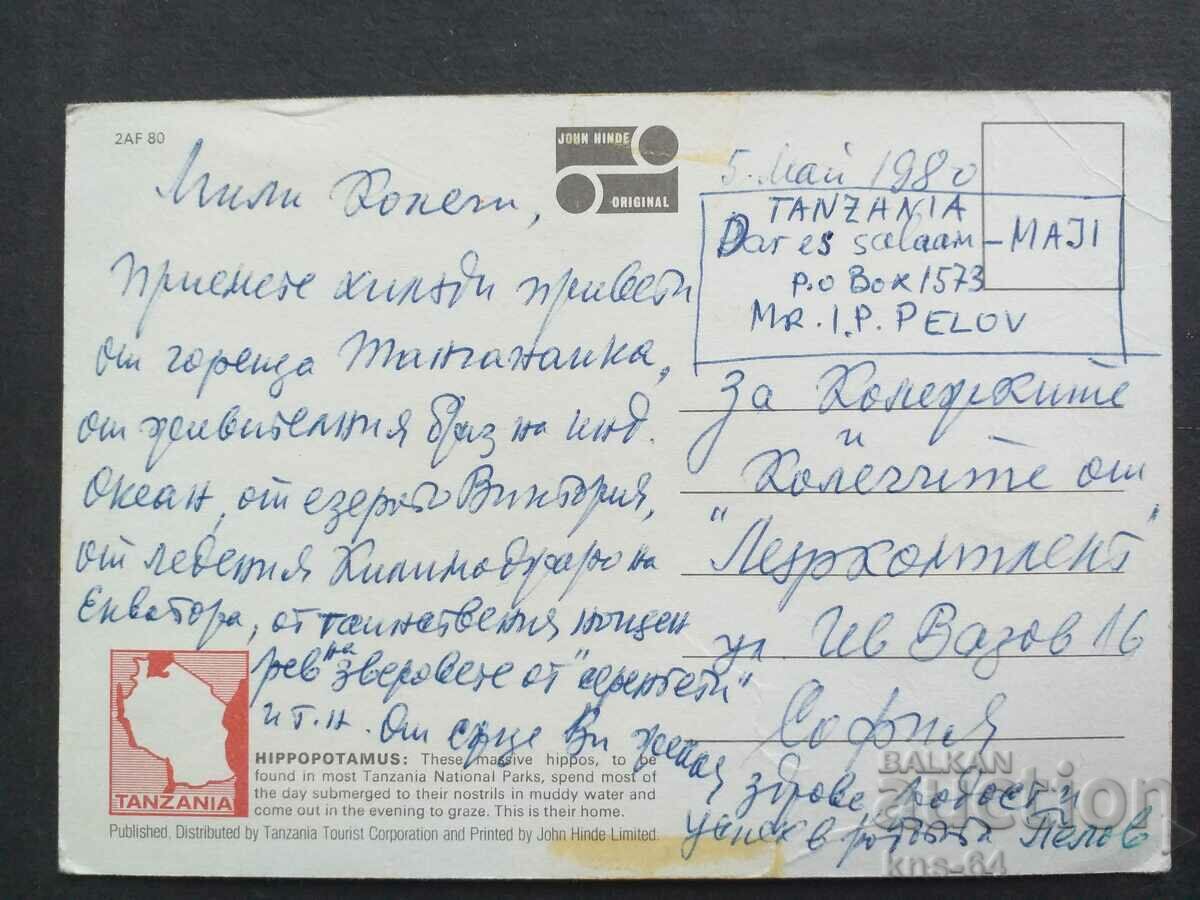 2AF 80
JOHN HINDE
ORIGINAL
Мили Колеги,
Приемете хиляди привети
от гореща Танганайка,
от живителния бряг на инд.
Океан, от езерото Виктория,
от ледения Килиманджаро на
Екватора, от таинствения нощен
рев на зверовете от "серенгети"
и т.н. От сърце Ви желая
здраве, радост и
успех в работата Пелов
5. Май 1980
TANZANIA
Dar es salaam – MAJI
P.O Box 1573
MR. I.P. PELOV
За Колежките
и
Колегите от
"Лезжкомплект"
ул. Ив Вазов 16
София
TANZANIA
HIPPOPOTAMUS: These massive hippos, to be
found in most Tanzania National Parks, spend most of
the day submerged to their nostrils in muddy water and
come out in the evening to graze. This is their home.
Published, Distributed by Tanzania Tourist Corporation and Printed by John Hinde Limited.
BALKAN
auction
kns-64